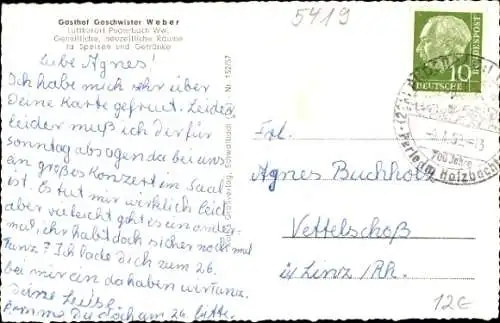 Gasthof Geschwister Weber
Luftkurort Puderbach Ww.
Gemütliche, neuzeitliche Räume
Ia Speisen und Getränke
5419
Liebe Agnes!
Ich habe mich sehr über
Deine Karte gefreut. Leider,
leider muß ich Dir für
Sonntag absagen da bei uns
ein großes Konzert im Saal
ist. Es tut mir wirklich leid
aber vieleicht geht es ein ander-
mal, ihr habt doch sicher noch mal
Tanz? Ich lade Dich zum 26.
bei mir ein da haben wir Tanz.
Deine Leuise
Komme Du doch am 26. bitte.
Nr. 152/57
DEUTSCHE BUNDESPOST
10
700 Jahre
Holzbach
Frl.
Agnes Buchholz
Vettelschoß
ü/Linz/Rh.
12€